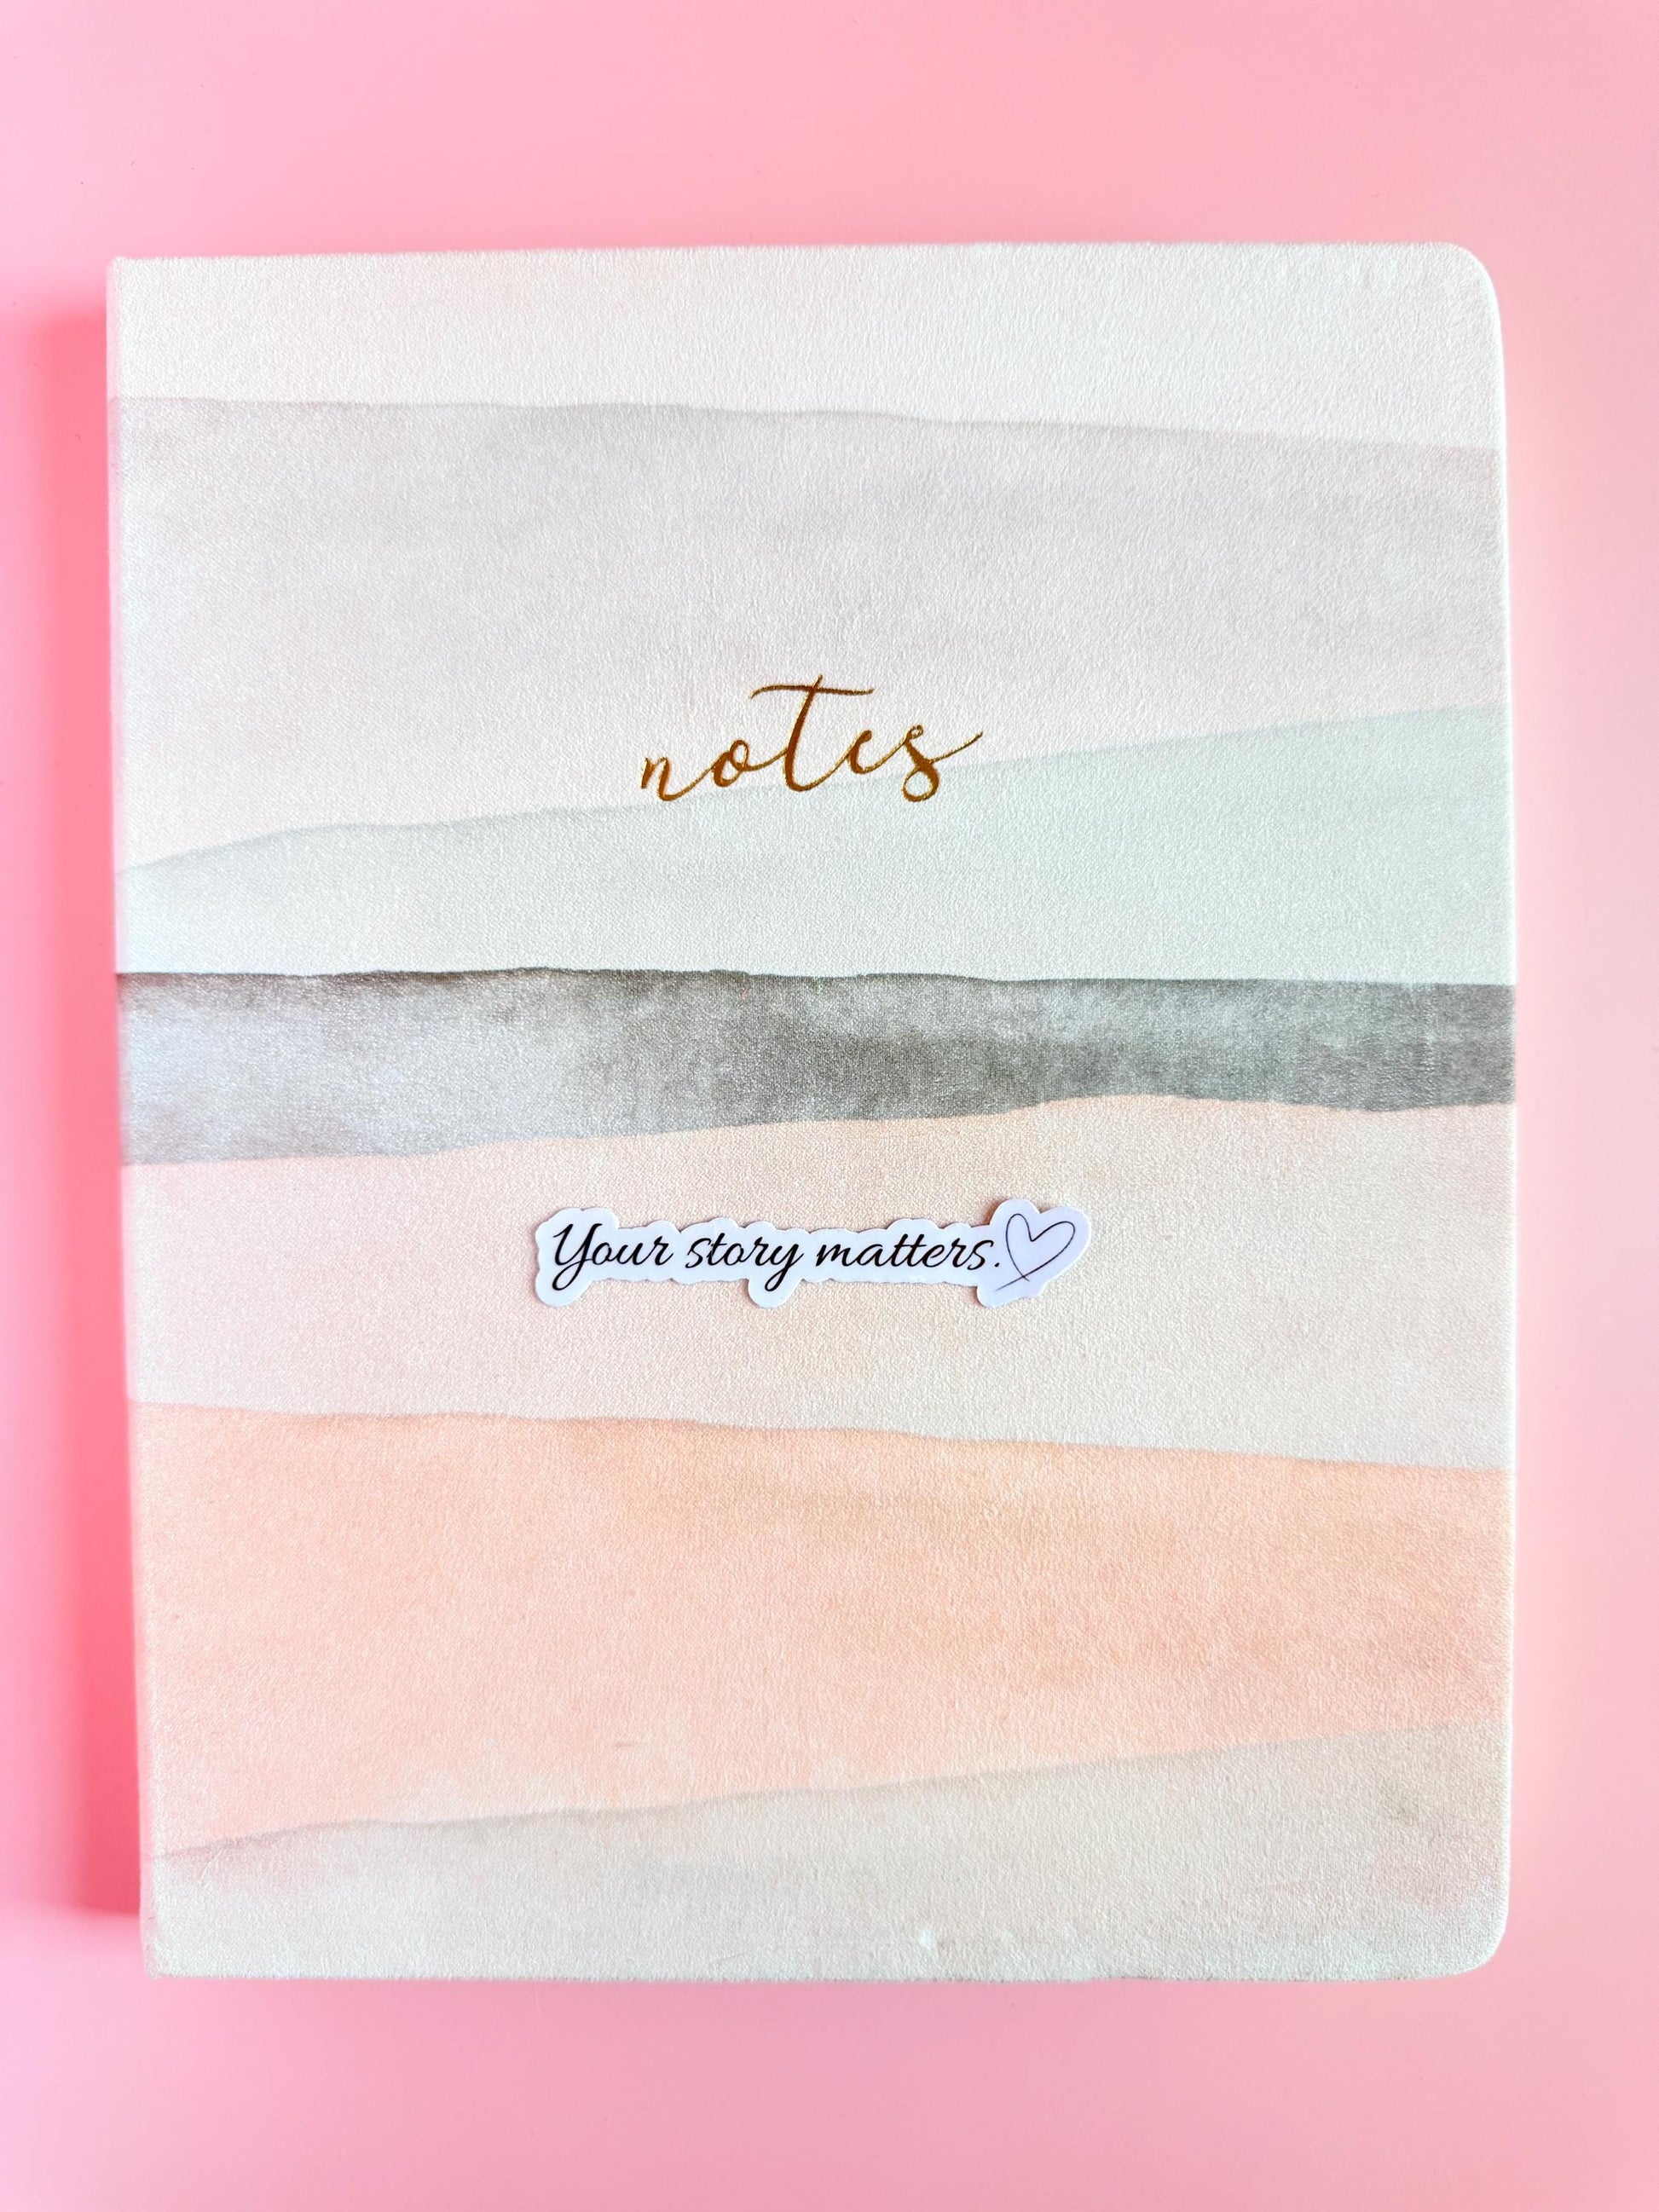 notes
Your story matters.